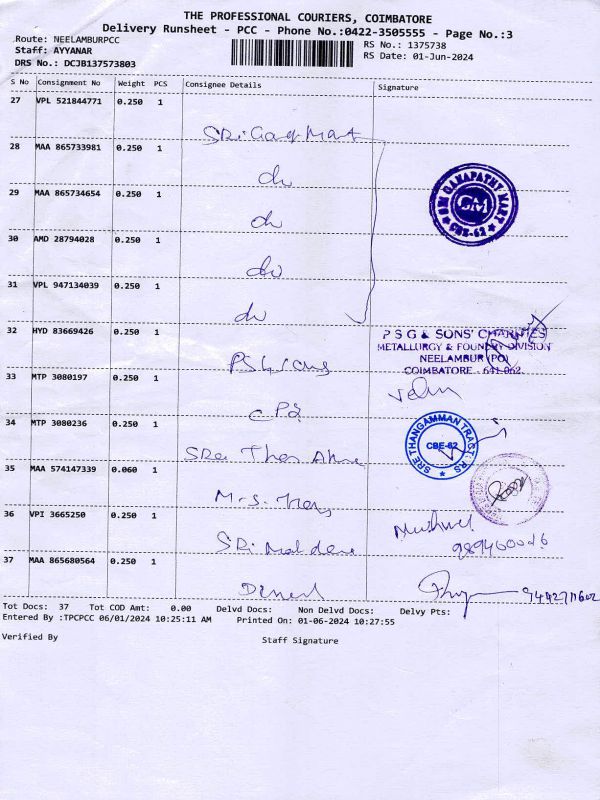 THE PROFESSIONAL COURIERS, COIMBATORE
Delivery Runsheet - PCC - Phone No.:0422-3505555 - Page No.:3
Route: NEELAMBURPCC
RS No.: 1375738
Staff: AYYANAR
RS Date: 01-Jun-2024
DRS No.: DCJB137573803
S No Consignment No Weight PCS Consignee Details Signature
27 VPL 521844771 0.250 1
SRi Mart
28 MAA 865733981 0.250 1
do
29 MAA 865734654 0.250 1
do
30 AMD 28794028 0.250 1
do
31 VPL 947134039 0.250 1
do
SRI GANAPATHY MART
GM
★ CBE-62 ★
32 HYD 83669426 0.250 1
P S G & SONS' CHARITIES
METALLURGY & FOUNDRY DIVISION
NEELAMBUR (PO)
COIMBATORE - 641 062.
33 MTP 3080197 0.250 1
34 MTP 3080236 0.250 1
SRee
SREE THANGAMMAN TRACTORS
CBE-62
35 MAA 574147339 0.060 1
M.S.
36 VPI 3665250 0.250 1
SRi
37 MAA 865680564 0.250 1
Tot Docs: 37 Tot COD Amt: 0.00 Delvd Docs: Non Delvd Docs: Delvy Pts:
Entered By :TPCPCC 06/01/2024 10:25:11 AM Printed On: 01-06-2024 10:27:55
Verified By Staff Signature